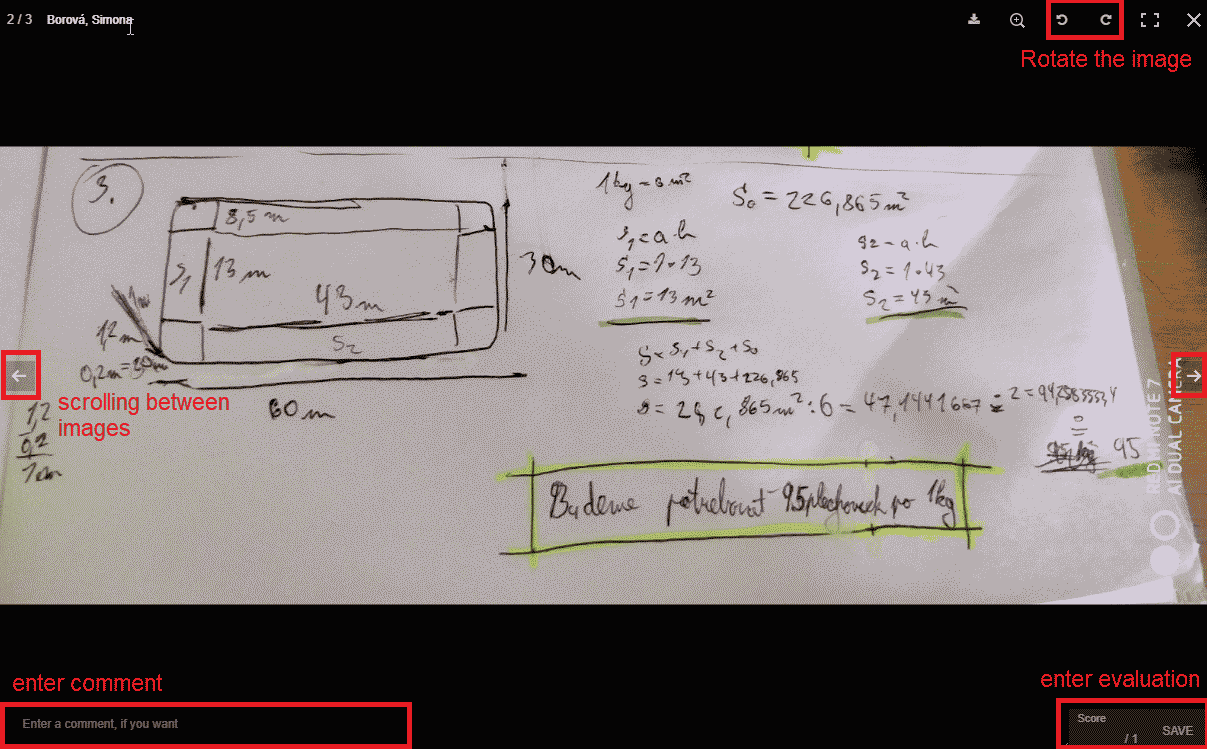 2 / 3 Borová, Simona
Rotate the image
3.
8,5 m
S1
13 m
43 m
S2
30m
1,2 m
60 m
1,2
0,2
1 m
1kg = 6 m²
S₀ = 226,865 m²
S₁ = a·b
S₁ = 1·13
S₁ = 13 m²
S2 = a·b
S₂ = 1·43
S₂ = 43 m
S = S₁ + S₂ + S₀
S = 13 + 43 + 226,865
865 m² : 6 = 47,1441667
95
Budeme potřebovat 95 plechovek po 1kg
REDMI NOTE 7
AI DUAL CAMERA
scrolling between
images
enter comment
Enter a comment, if you want
enter evaluation
Score
/ 1 SAVE